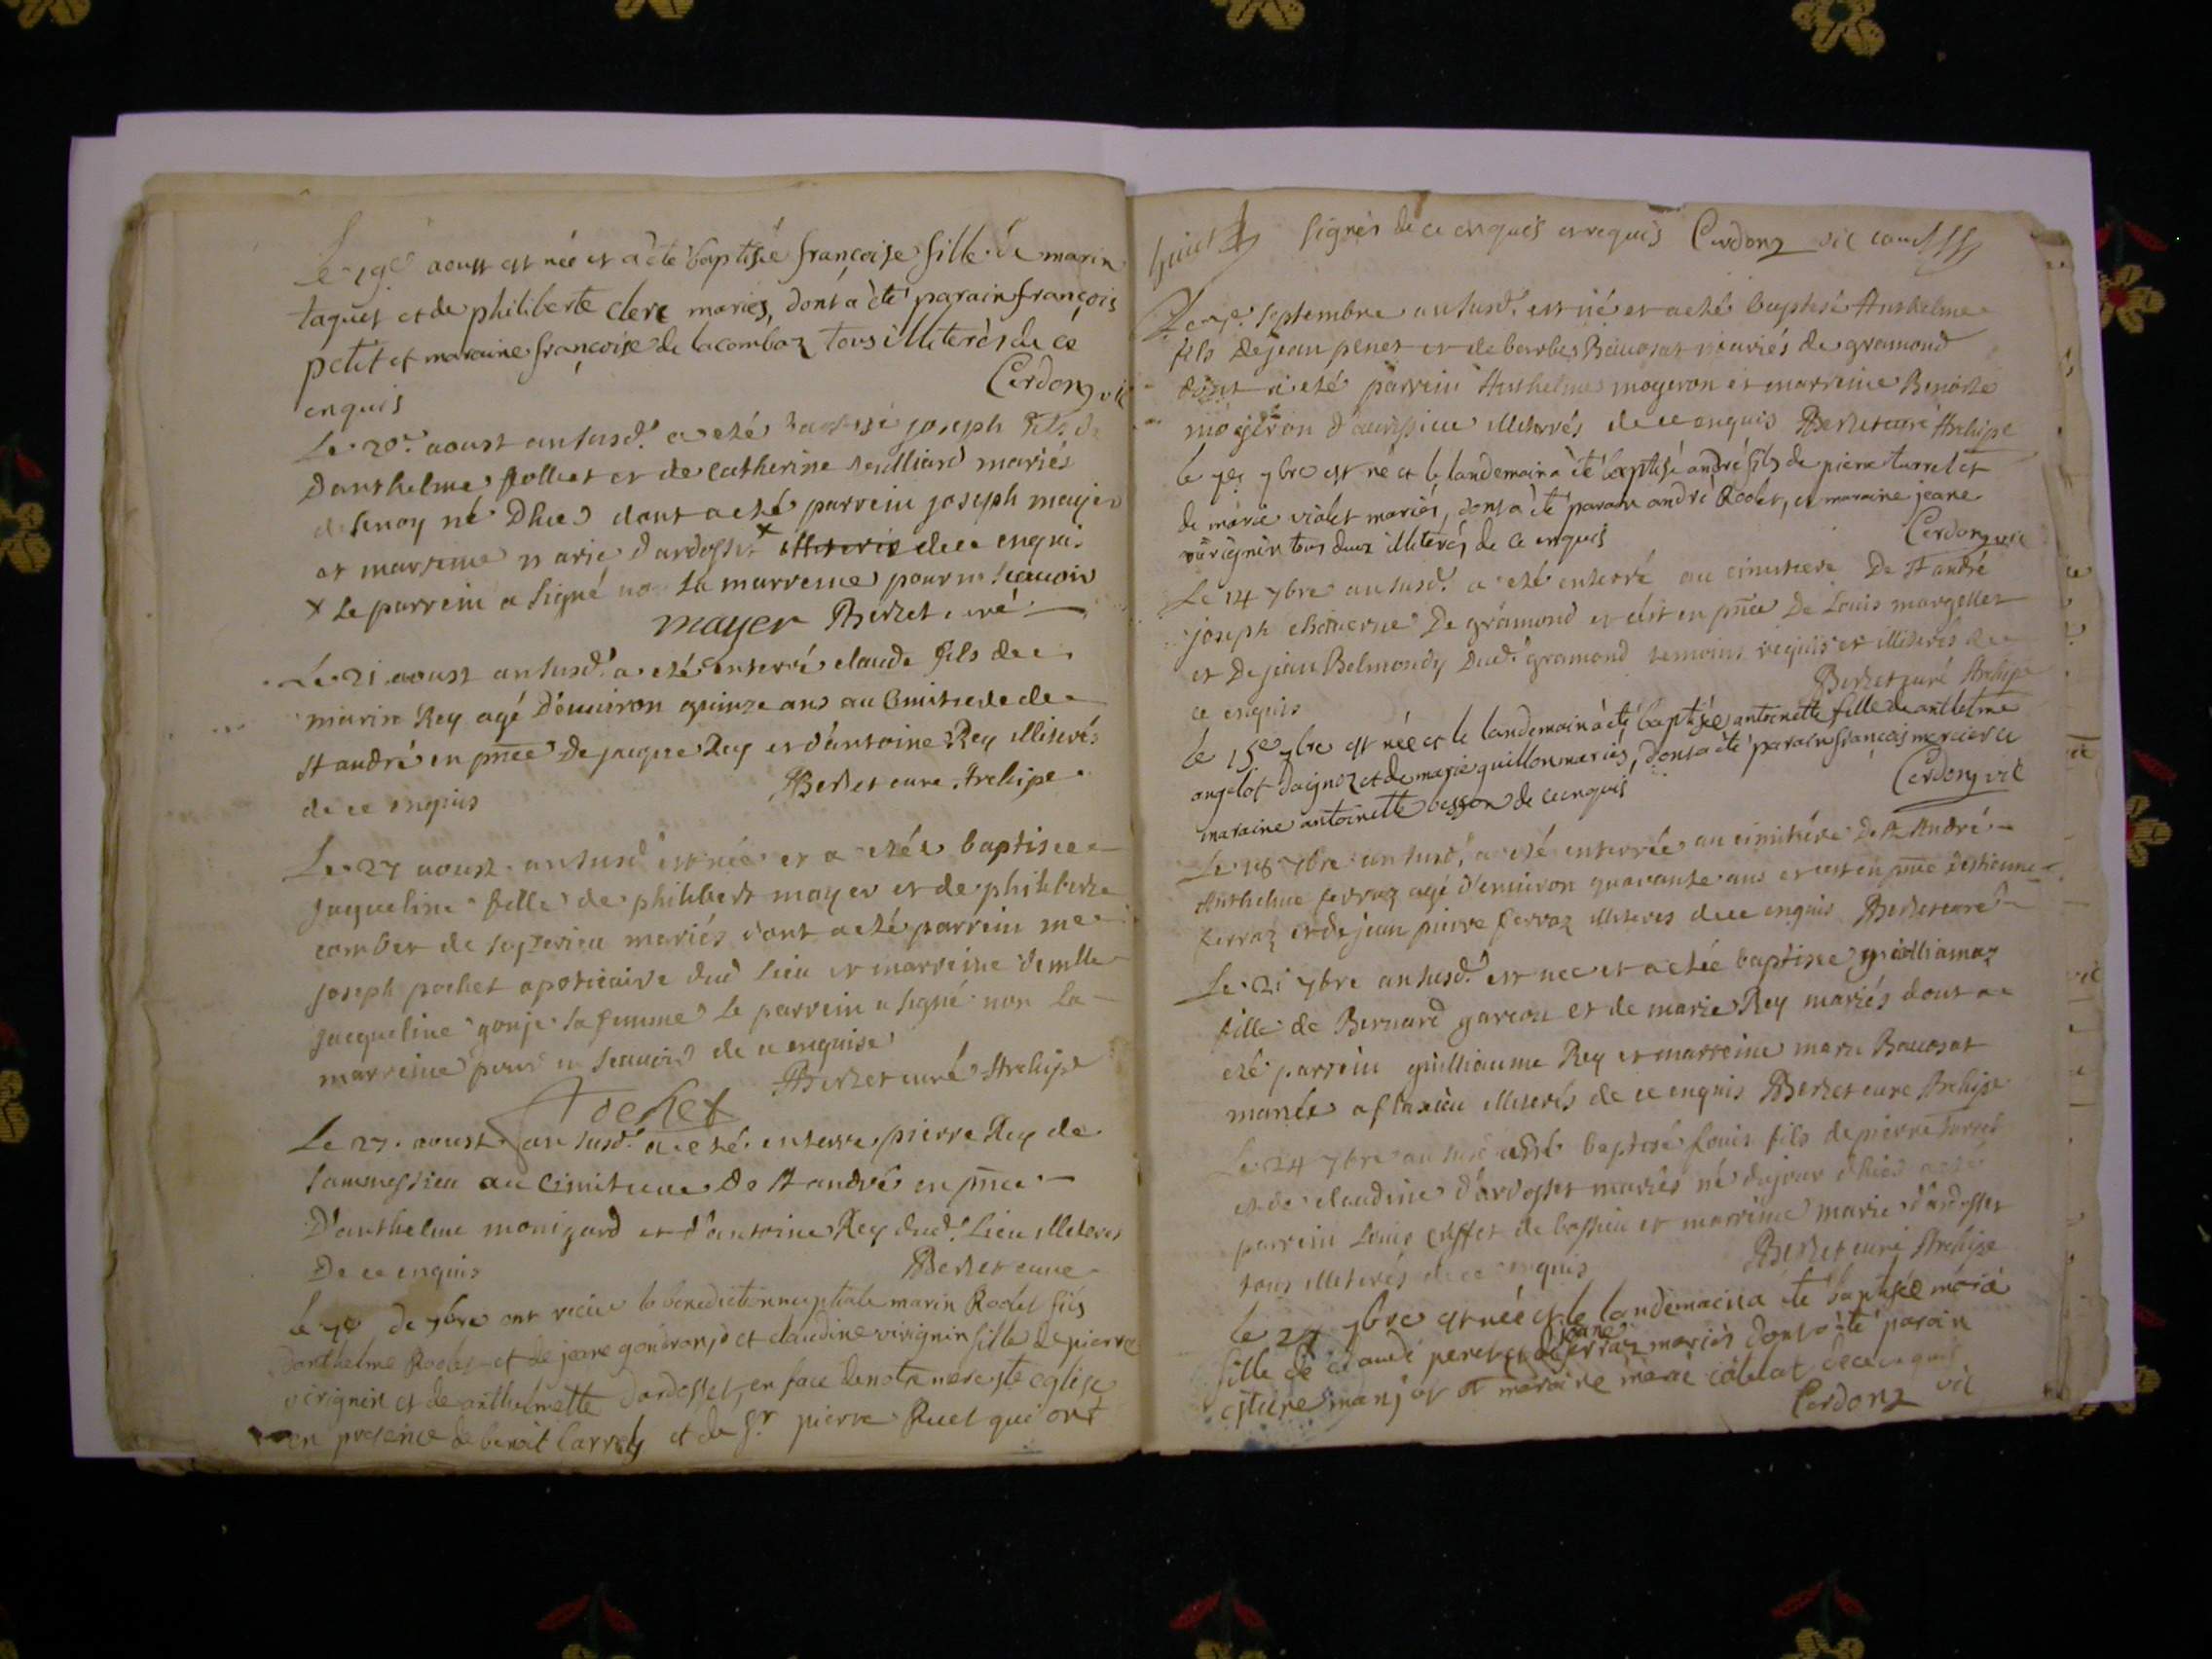 Le 19e aoust est née et a été baptisée françoise fille de marin
taquet et de philiberte clerc mariés, dont a été parain françois
petit et maraine françoise de lacombaz tous illiterés de ce
enquis Cerdonz vic
Le 20e aoust an susd. a eté baptisé joseph fils
Danthelme Rollet et de Catherine mariés
né D'hier dont a eté parrein joseph mayer
et marreine marie dardosset x illiteris de ce enquis
x Le parrein a signé non la marreine pour ne scauoir
mayer Berlet curé
Le 21 aoust an susd. a eté enterré claude fils de
marin Rey agé D'enuiron quinze ans au Cimitiere de
st andré en pnce De jaque Rey et d'antoine Rey illiterés
de ce enquis Berlet cure Archipe
Le 27 aoust an susd est née et a etée baptisée
jaqueline fille de philibert mayer et de philiberte
combet de mariés dont a eté parrein me
joseph pochet apoticaire dud lieu et marreine demlle
jacqueline gonje sa femme le parrein a signé non la
marreine pour ne scauoir de ce enquise
Berlet curé Archipe
Pochet
Le 27. aoust an susd. a eté enterré pierre Rey de
sammessieu au cimitiere De st andré en pnce
D'anthelme monizard et d'antoine Rey dud. Lieu illiterés
De ce enquis Berlet cure
le 7e de 7bre ont recue la benediction nuptiale marin Rodet fils
danthelme Rodet et de jeane gondran et claudine virignin fille de pierre
virignin et de anthelmette dardosset, en face de notre mere ste eglise
en presence de benoit Carrel et de Sr pierre Ruet qui ont
signés de ce enquis et requis Cerdonz vic
Le 7e. septembre an susd. est né et a eté baptisé Anthelme
fils De jean penet et de mariés de gramond
dont a eté parrein Anthelme mogeron et marreine Benoite
mogeron d'aurissieu illiterés de ce enquis Berlet curé Archipe
le 7e 7bre est né et le landemain a été baptisé andré fils de pierre turrel et
de marie violet mariés, dont a été parain andré Rodet, et maraine jeane
virignin tous deux illiterés de ce enquis Cerdonz vic
Le 14 7bre an susd. a eté enterré au cimitiere De st andré
joseph De gramond et c'est en pnce De Louis margollet
et De jean Belmondy Dud. gramond temoins requis et illiterés de
ce enquis Berlet curé Archipe
le 15e 7bre est née et le landemain a été baptisée antoinette fille de anthelme
angelot daignoz et de marie guillon mariés, dont a été parain françois mercier et
maraine antoinette besson de ce enquis Cerdonz vic
Le 18 7bre an susd. a eté enterrée au cimitiére De st André
Anthelme ferraz agé d'enuiron quarante ans et c'est en pnce destienne
ferraz et de jean pierre ferraz illiteres de ce enquis Berlet curé
Le 21 7bre an susd. est née et a etée baptisée guilliamaz
fille de Bernard garcon et de marie Rey mariés dont a
eté parrein guilliaume Rey et marreine marie Baucosat
illiterés de ce enquis Berlet cure Archipe
Le 24 7bre an susd a eté baptisé Louis fils de pierre
et de claudine d'ardosset mariés né du jour d'hier a eté
parrein Louis de bassieu et marreine marie d'ardosset
tous illiterés de ce enquis Berlet curé Archipe
le 27 7bre est née et le landemain a été baptisée marie
fille de claude penet et de jeane ferraz mariés dont a été parain
estiene manjot et maraine marie de ce enquis
Cerdonz vic